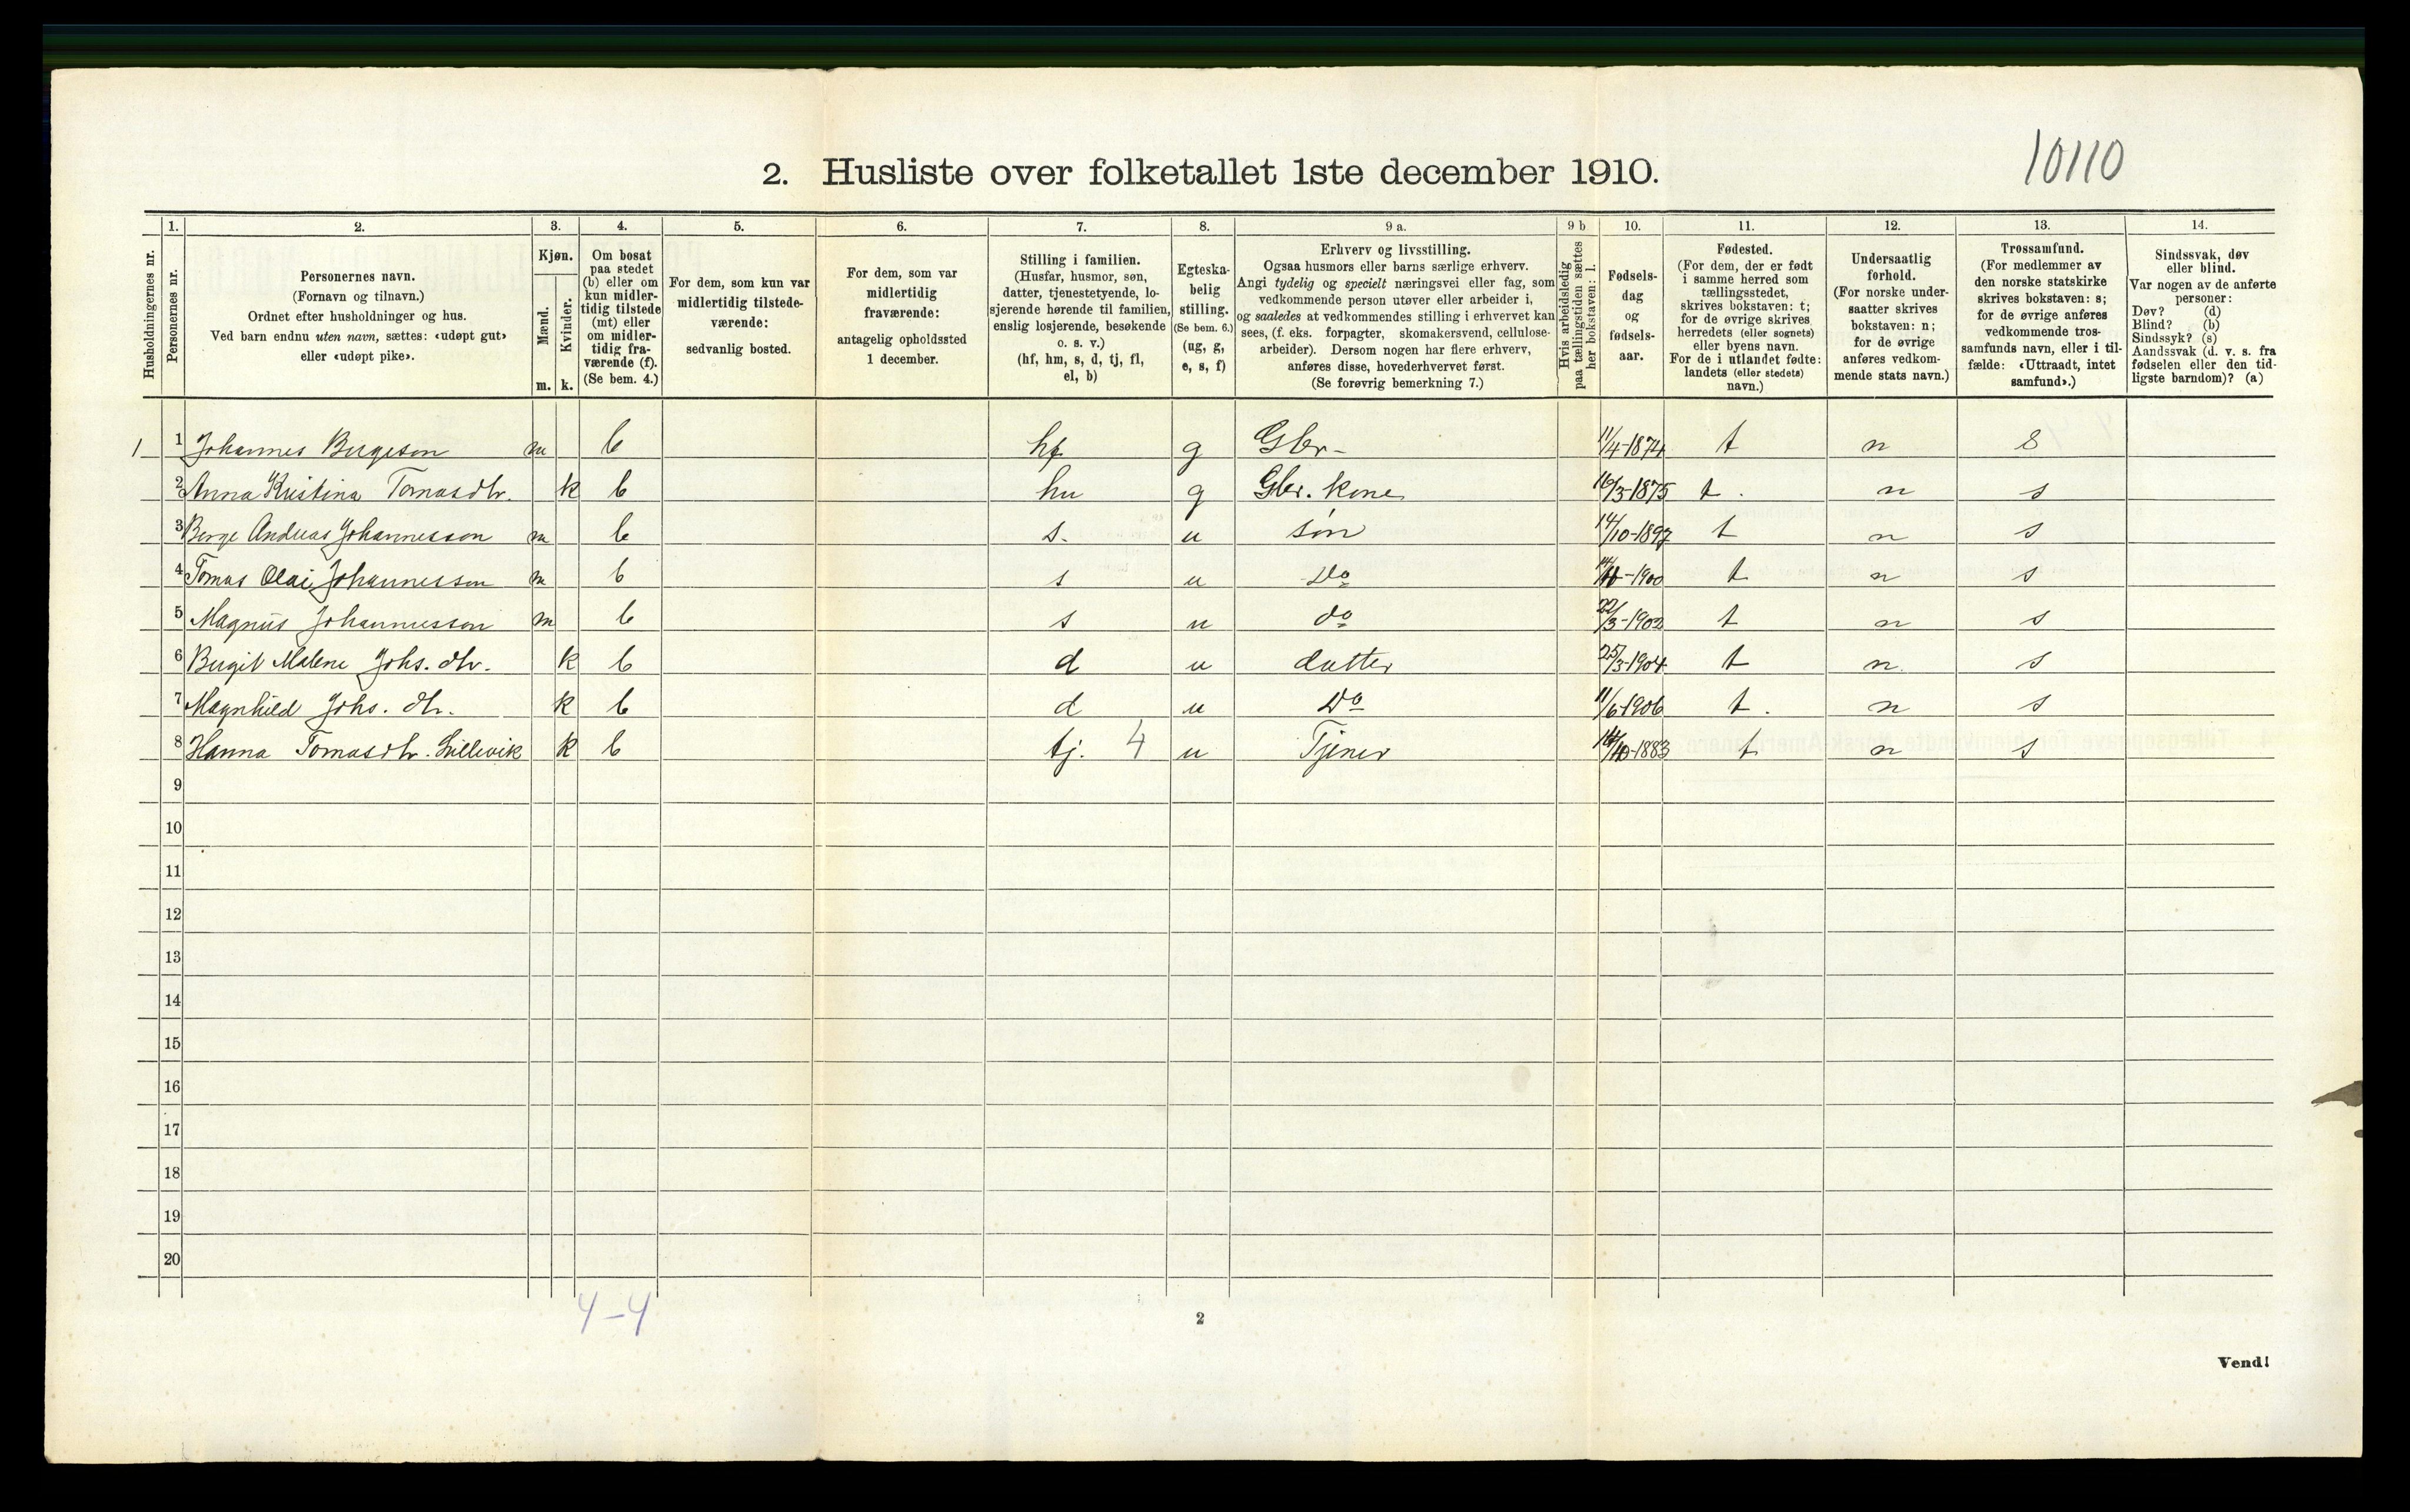 10110
2. Husliste over folketallet 1ste december 1910.
1. 2. 3. 4. 5. 6. 7. 8. 9 a. 9 b 10. 11. 12. 13. 14.
Husholdningernes nr.
Personernes nr.
Personernes navn.
(Fornavn og tilnavn.)
Ordnet efter husholdninger og hus.
Ved barn endnu uten navn, sættes: «udøpt gut»
eller «udøpt pike».
Kjøn.
Mænd.
Kvinder.
m. k.
Om bosat
paa stedet
(b) eller om
kun midler-
tidig tilstede
(mt) eller
om midler-
tidig fra-
værende (f).
(Se bem. 4.)
For dem, som kun var
midlertidig tilstede-
værende:
sedvanlig bosted.
For dem, som var
midlertidig
fraværende:
antagelig opholdssted
1 december.
Stilling i familien.
(Husfar, husmor, søn,
datter, tjenestetyende, lo-
sjerende hørende til familien,
enslig losjerende, besøkende
o. s. v.)
(hf, hm, s, d, tj, fl,
el, b)
Egteska-
belig
stilling.
(Se bem. 6.)
(ug, g,
e, s, f)
Erhverv og livsstilling.
Ogsaa husmors eller barns særlige erhverv.
Angi tydelig og specielt næringsvei eller fag, som
vedkommende person utøver eller arbeider i,
og saaledes at vedkommendes stilling i erhvervet kan
sees, (f. eks. forpagter, skomakersvend, cellulose-
arbeider). Dersom nogen har flere erhverv,
anføres disse, hovederhvervet først.
(Se forøvrig bemerkning 7.)
Hvis arbeidsledig
paa tællingstiden sættes
her bokstaven: l.
Fødsels-
dag
og
fødsels-
aar.
Fødested.
(For dem, der er født
i samme herred som
tællingsstedet,
skrives bokstaven: t;
for de øvrige skrives
herredets (eller sognets)
eller byens navn.
For de i utlandet fødte:
landets (eller stedets)
navn.)
Undersaatlig
forhold.
(For norske under-
saatter skrives
bokstaven: n;
for de øvrige
anføres vedkom-
mende stats navn.)
Trossamfund.
(For medlemmer av
den norske statskirke
skrives bokstaven: s;
for de øvrige anføres
vedkommende tros-
samfunds navn, eller i til-
fælde: «Uttraadt, intet
samfund».)
Sindssvak, døv
eller blind.
Var nogen av de anførte
personer:
Døv? (d)
Blind? (b)
Sindssyk? (s)
Aandssvak (d. v. s. fra
fødselen eller den tid-
ligste barndom)? (a)
1 1 Johannes Bergeson m b hf g Gbr- 11/4-1874 t n s
2 Anna Kristina Tomasdtr. k b hu g Gbr. kone 16/3-1875 t. n s
3 Berge Andreas Johannesson m b s. u søn 14/10-1897 t n s
4 Tomas Olai Johannesson m b s u Do -1900 t n s
5 Magnus Johannesson m b s u do 22/3-1902 t n s
6 Bergit Malene Johs. dtr. k b d u datter 25/3-1904 t n. s
7 Magnhild Johs. dtr. k b d u Do 11/6-1906 t. n s
8 Hanna Tomasdtr. Lillevik k b tj. 4 u Tjener 14/10-1883 t n s
9
10
11
12
13
14
15
16
17
18
19
20
4-4
2
Vend!